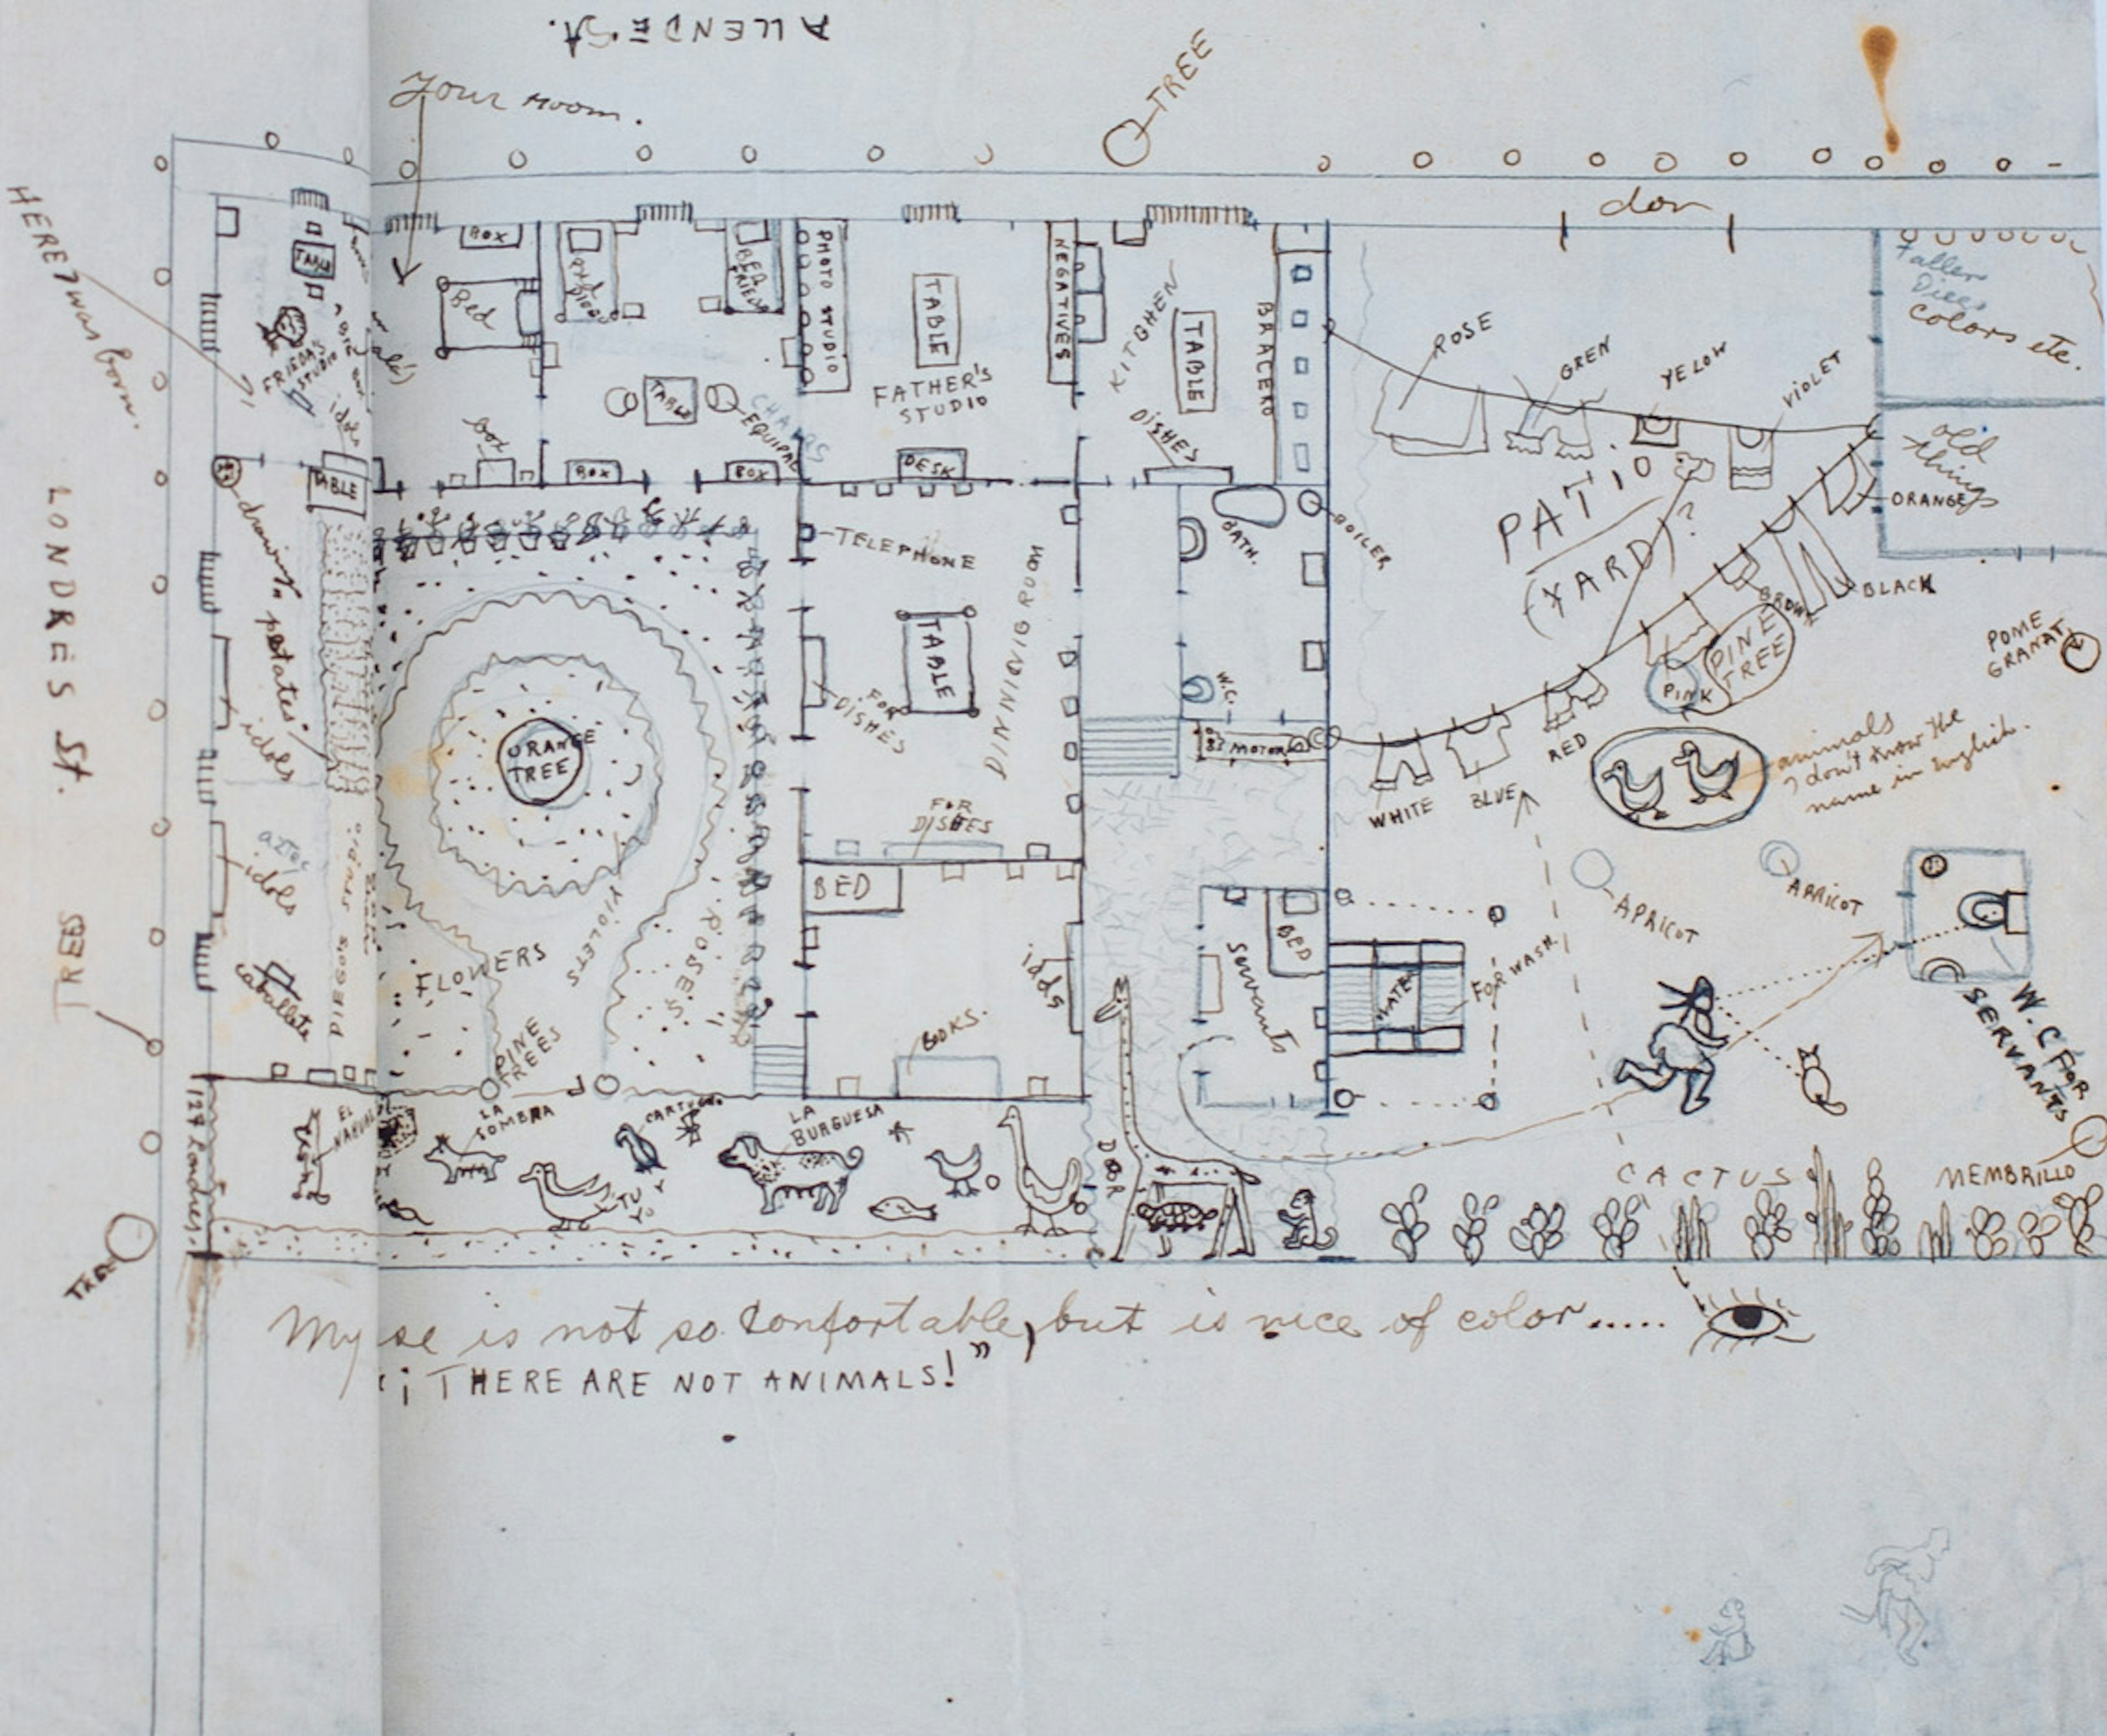 ALLENDE ST.
Your room.
TREE
HERE I was born.
LONDRES St.
TREES
TREE
127 Londres.
TABLE
FRIEDA'S
STUDIO
idols
TABLE
drawing
petates
idols
aztec
idols
caballete
DIEGO'S STUDIO
BOX
Bed
box
BED
FRIEDA
TABLE
CHAIRS
EQUIPAL
BOX
BOX
PHOTO STUDIO
TABLE
FATHER'S
STUDIO
DESK
NEGATIVES
KITCHEN
TABLE
DISHES
BRACERO
dor
Taller
colors etc.
old
things
ROSE
GREN
YELOW
VIOLET
ORANGE
BLACK
BROW
PINK
RED
BLUE
WHITE
PATIO
(YARD)?
PINE
TREE
POME
GRANAT
animals
I don't know the
name in english.
APRICOT
APRICOT
W.C FOR
SERVANTS
TELEPHONE
TABLE
DINNING ROOM
FOR
DISHES
FOR
DISHES
BATH.
BOILER
W.C.
MOTOR
ORANGE
TREE
FLOWERS
VIOLETS
ROSES
PINE
TREES
BED
idols
BOOKS.
Servants
BED
WATER
FOR WASH.
EL
LA
SOMBRA
LA
BURGUESA
DOOR
CACTUS
MEMBRILLO
My se is not so confortable, but is nice of color.....
"¡THERE ARE NOT ANIMALS!"